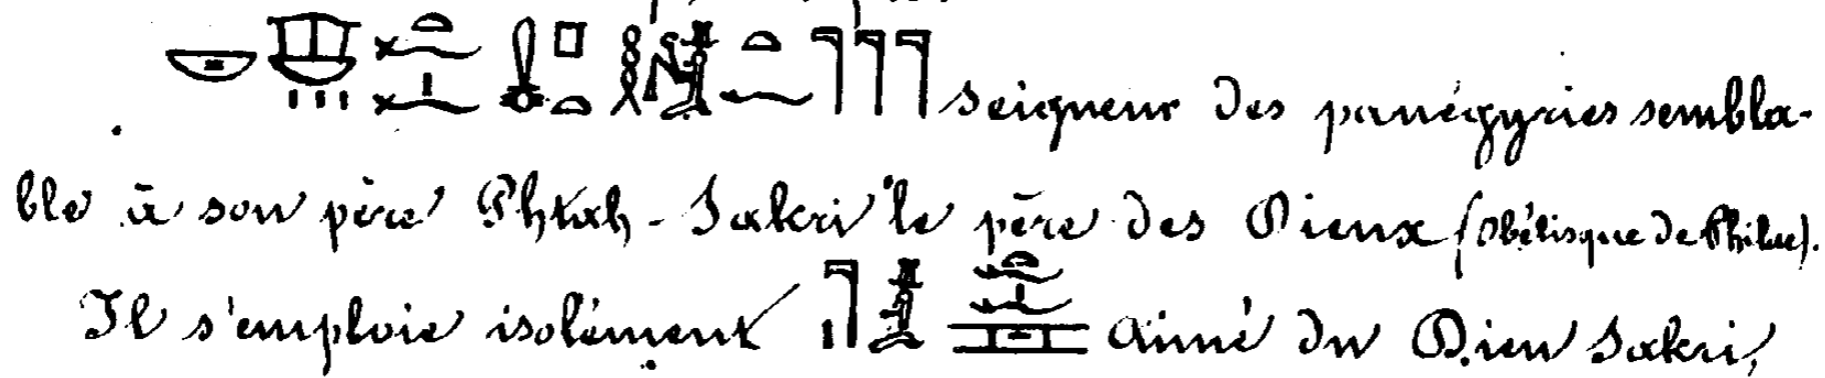 seigneur des panégyries sembla-
ble à son père Phtah-Sakri le père des Dieux (Obélisque de Philae).
Il s'emploie isolément aimé du Dieu Sakri,